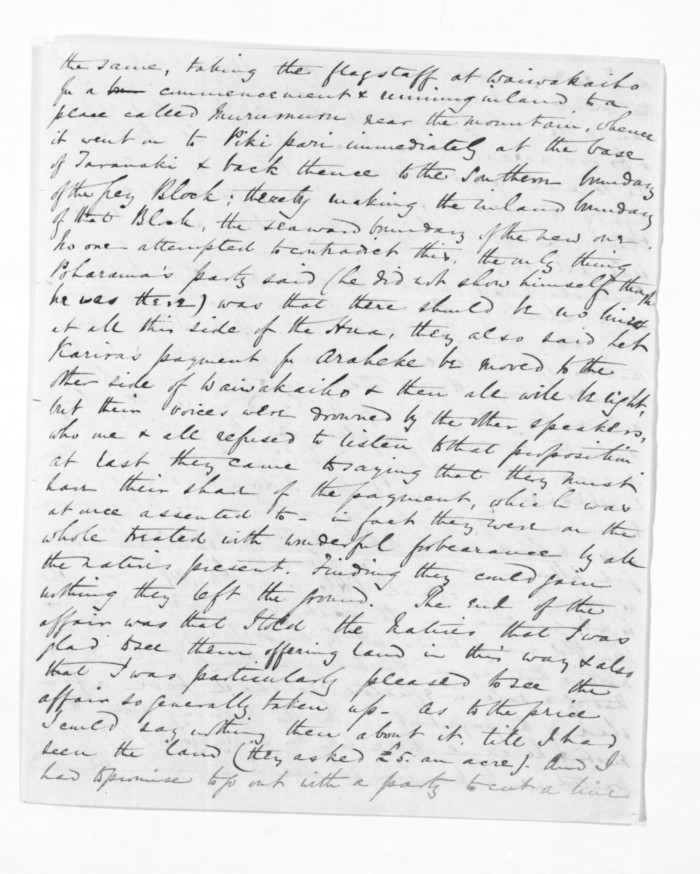 the same, taking the flagstaff at Waiwakaiho
for a commencement & running inland to a
place called Murumuru near the mountain, whence
it went on to Pikipari immediately at the base
of Taranaki & back thence to the Southern boundary
of the grey Block; thereby making the inland boundary
of that Block, the seaward boundary of the new one.
No one attempted to contradict this, the only thing
Pharama's party said (he did not show himself though
he was there) was that there should be no
at all this side of the Hua, they also said let
Karira's payment for Araheke be moved to the
other side of Waiwakaiho & then all will be right,
but their voices were drowned by the other speakers,
who one & all refused to listen to that proposition
at last they came to saying that they must
have their share of the payment, which was
at once assented to - in fact they were on the
whole treated with wonderful forbearance by all
the natives present. Finding they could gain
nothing they left the ground. The end of the
affair was that I told the Natives that I was
glad to see them offering land in this way & also
that I was particularly pleased to see the
affair so generally taken up - As to the price
I could say nothing then about it till I had
seen the land (they asked £5. an acre). And I
had to promise to go out with a party to cut a line